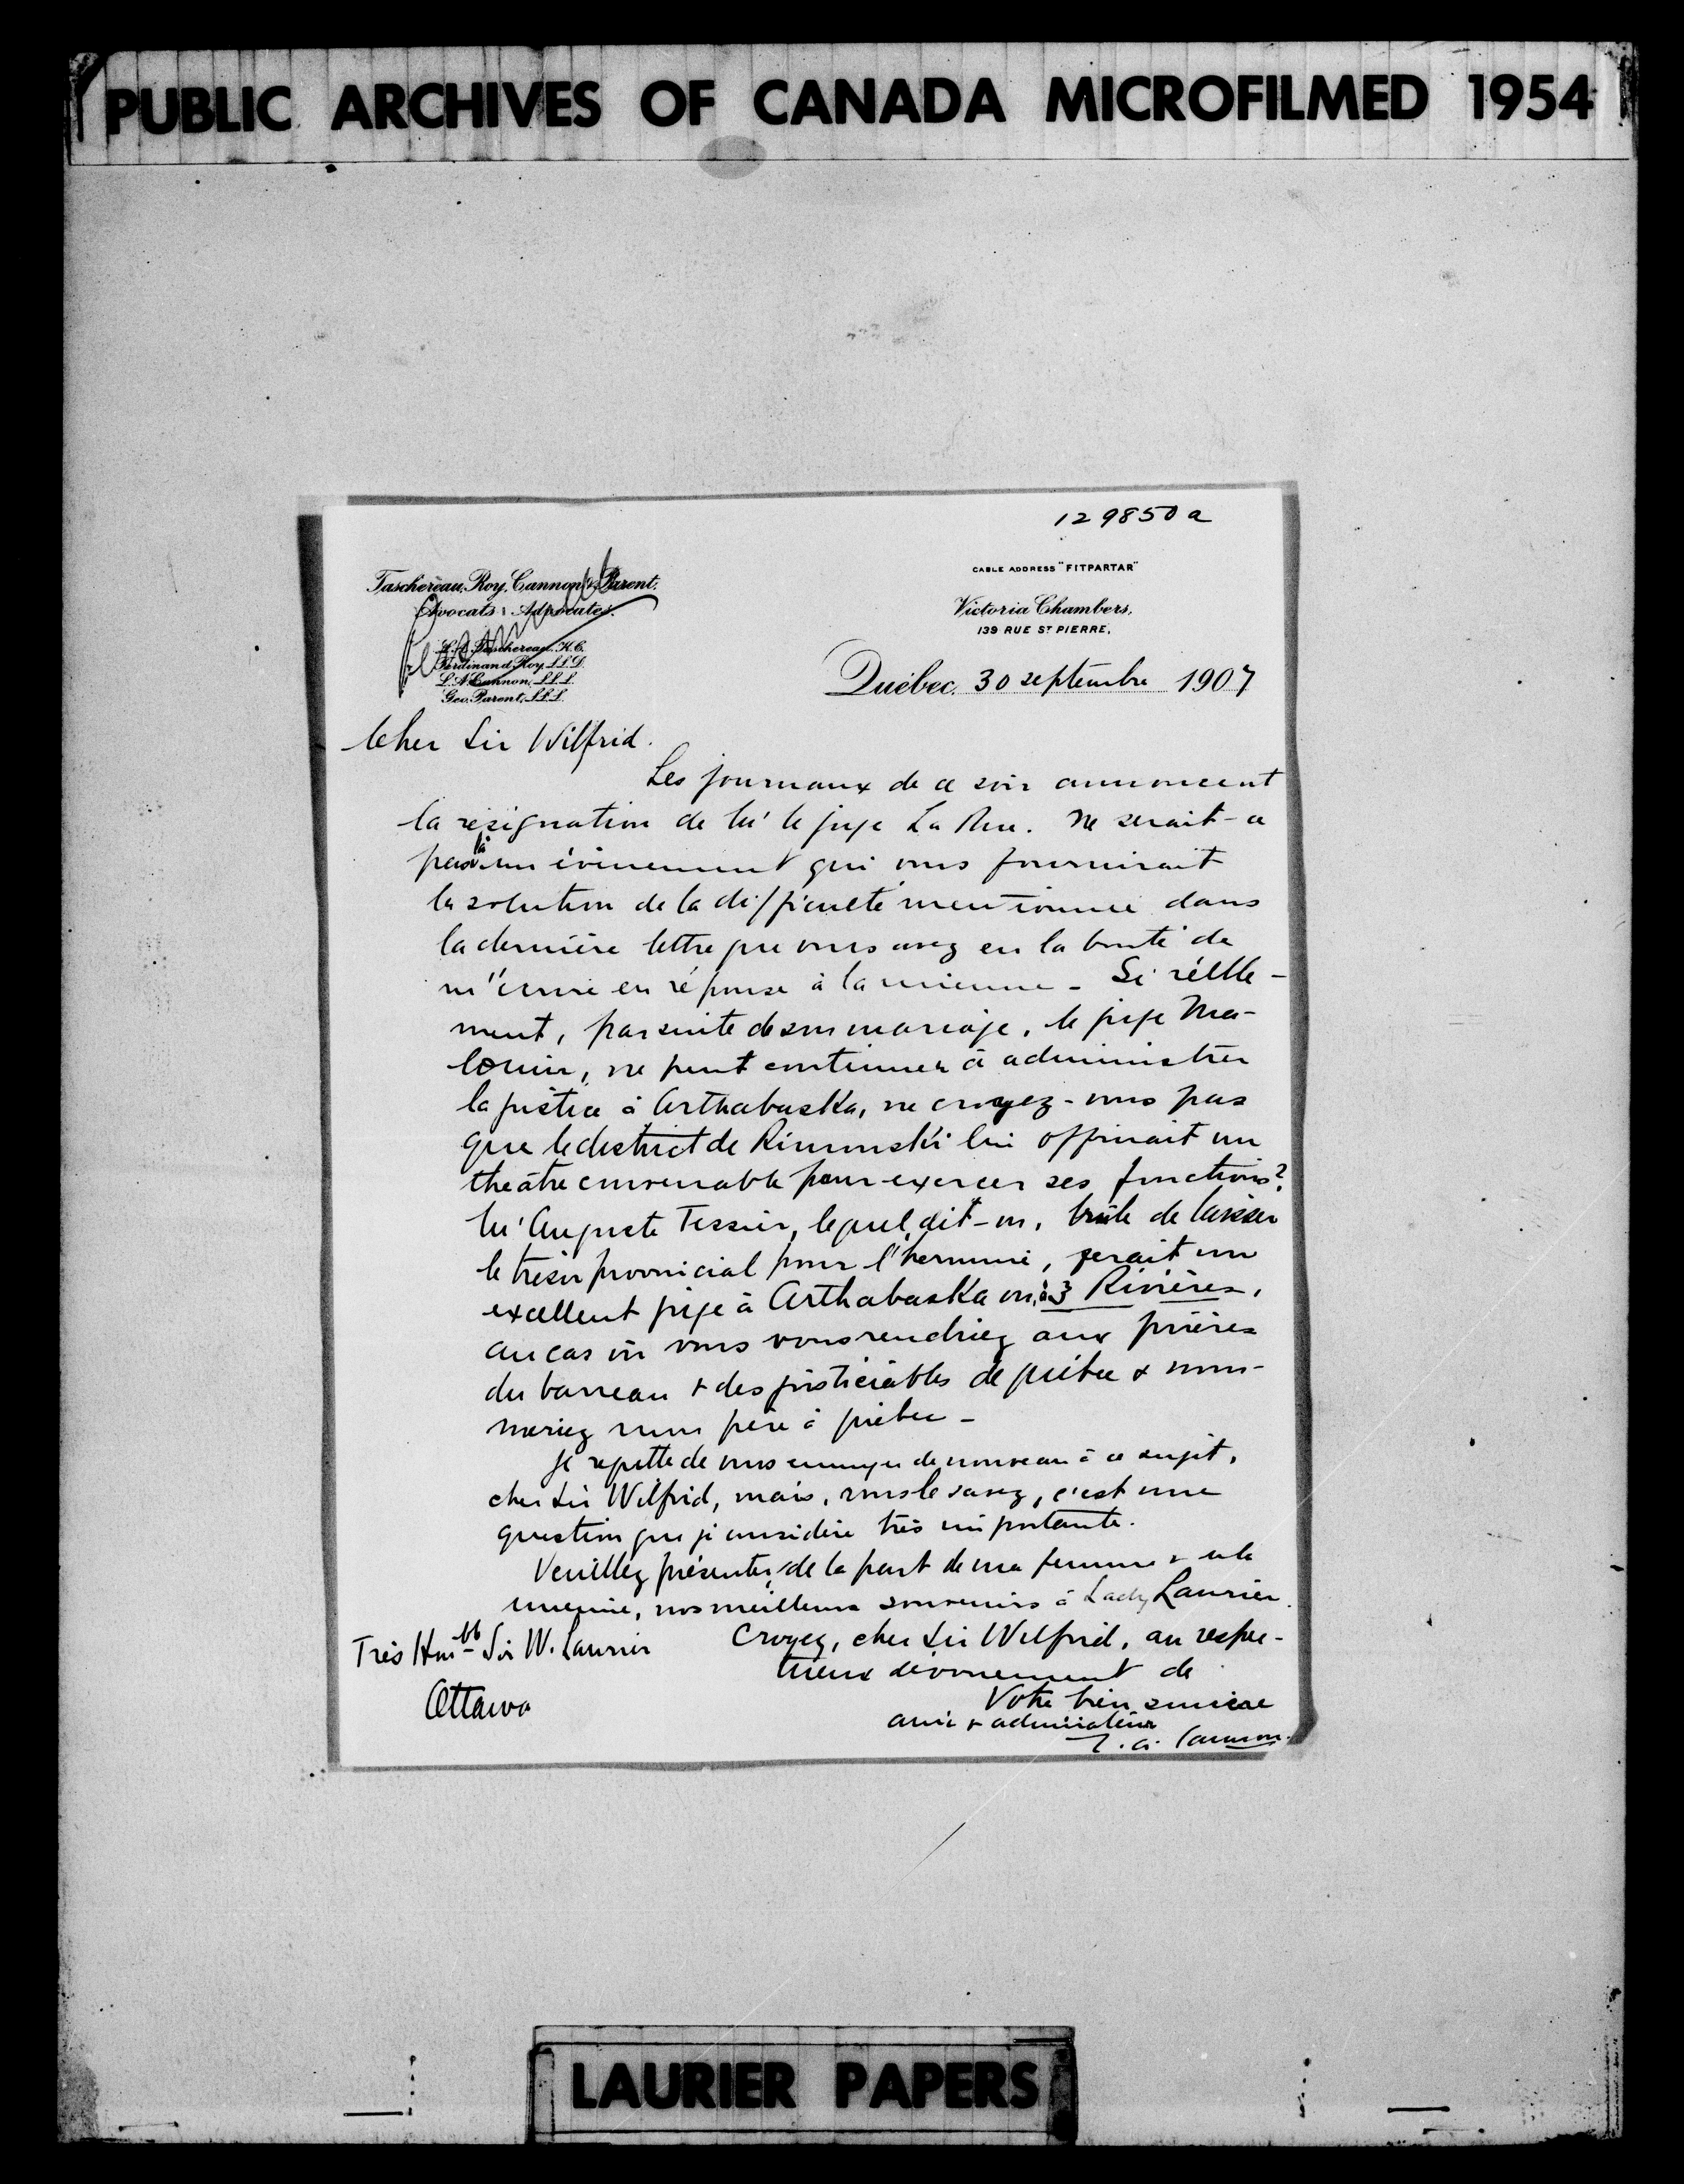 PUBLIC ARCHIVES OF CANADA MICROFILMED 1954
129850 a
Taschereau, Roy, Cannon & Parent,
Avocats : Advocates.
L. A. Taschereau, K.C.
Ferdinand Roy, LL.D.
L. A. Cannon, LL.L.
Geo. Parent, LL.L.
CABLE ADDRESS "FITPARTAR"
Victoria Chambers,
139 RUE ST PIERRE,
Québec, 30 septembre 1907
Cher Sir Wilfrid.
Les journaux de ce soir annoncent
la résignation de M' le juge La Rue. Ne serait-ce
pas là un évènement qui vous fournirait
la solution de la difficulté mentionnée dans
la dernière lettre que vous avez eu la bonté de
m'écrire en réponse à la mienne - Si réelle-
ment, par suite de son mariage, le juge Ma-
louin, ne peut continuer à administrer
la justice à Arthabaska, ne croyez-vous pas
que le district de Rimouski lui offrirait un
theâtre convenable pour exercer ses fonctions?
M' Auguste Tessier, lequel, dit-on, brûle de laisser
le trésor provincial pour l'hermine, ferait un
excellent juge à Arthabaska ou à 3 Rivières,
au cas où vous vous rendriez aux prières
du barreau & des justiciables de Québec & nom-
meriez mon père à Québec -
Je regrette de vous ennuyer de nouveau à ce sujet,
cher Sir Wilfrid, mais, vous le savez, c'est une
question que je considère très importante.
Veuillez présenter, de la part de ma femme & de la
mienne, nos meilleurs souvenirs à Lady Laurier.
Croyez, cher Sir Wilfrid, au respec-
tueux dévouement de
Votre bien sincère
ami & admirateur
L. A. Cannon.
Très Honble Sir W. Laurier
Ottawa
LAURIER PAPERS